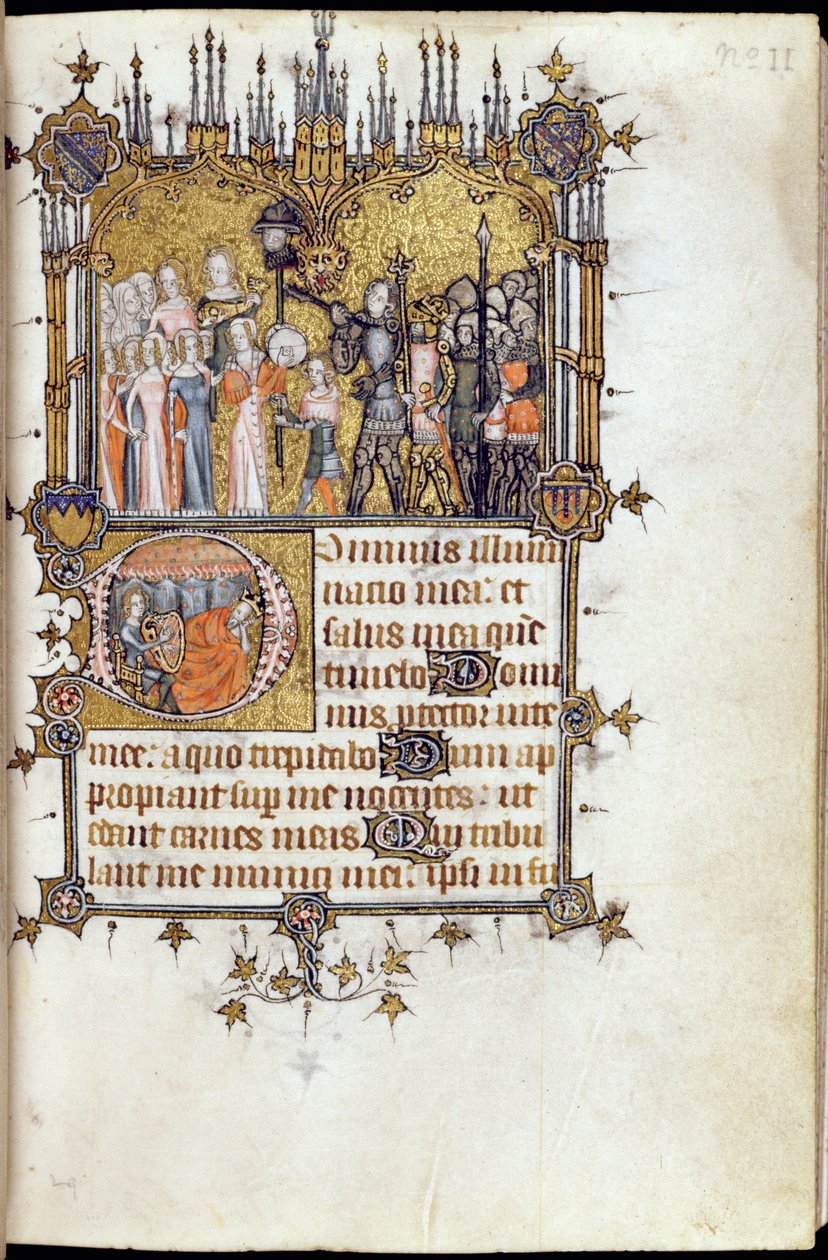 No 11
Dominus illumi
nacio mea: et
salus mea que
timebo Domi
nus ptector vite
mee: a quo trepidabo Dum ap
propiant sup me nocentes: ut
edant carnes meas Qui tribu
lant me inimici mei: ipsi infir
29